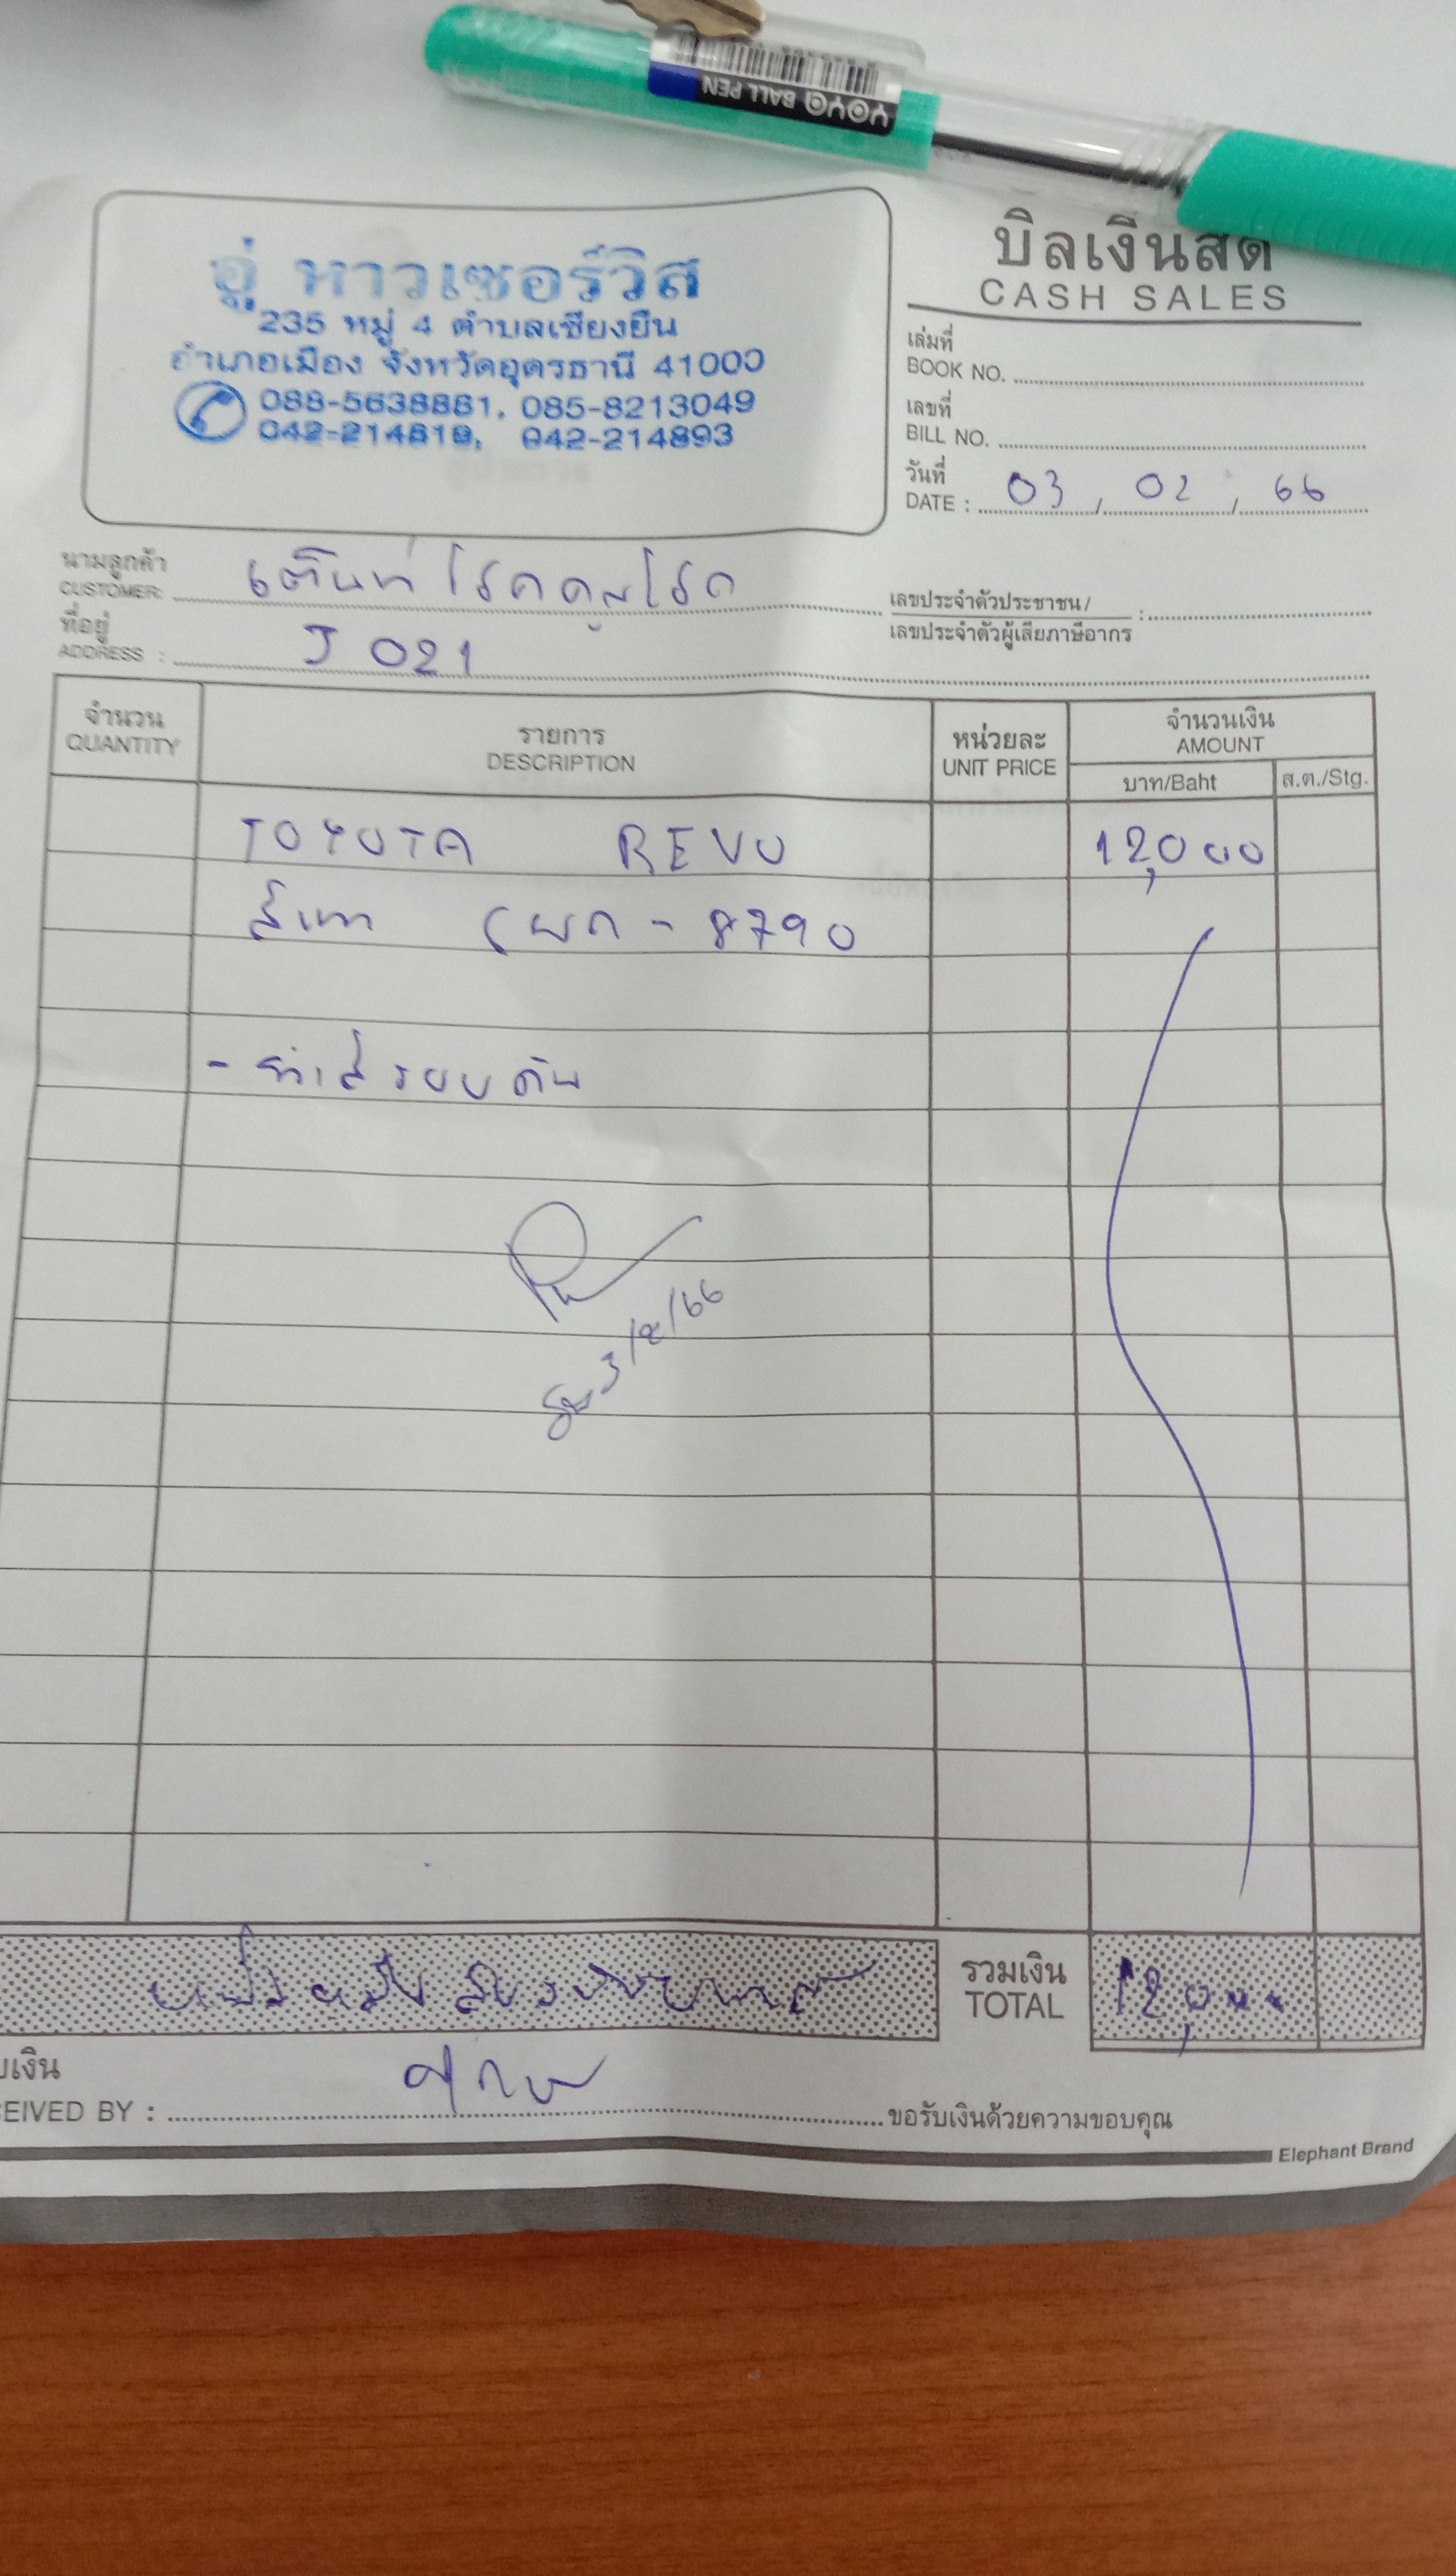 YOYA BALL PEN
อู่ หาวเซอร์วิส
235 หมู่ 4 ตำบลเชียงยืน
อำเภอเมือง จังหวัดอุดรธานี 41000
088-5638881, 085-8213049
042-214819, 042-214893
บิลเงินสด
CASH SALES
เล่มที่
BOOK NO.
เลขที่
BILL NO.
วันที่
DATE : 03 / 02 / 66
นามลูกค้า
CUSTOMER:
ที่อยู่
ADDRESS : J 021
เลขประจำตัวประชาชน /
เลขประจำตัวผู้เสียภาษีอากร :
จำนวน
QUANTITY
รายการ
DESCRIPTION
หน่วยละ
UNIT PRICE
จำนวนเงิน
AMOUNT
บาท/Baht ส.ต./Stg.
TOYOTA REVO 12,000
สีเทา - 8790
3/2/66
รวมเงิน
TOTAL 12,000
บเงิน
EIVED BY : ขอรับเงินด้วยความขอบคุณ
Elephant Brand